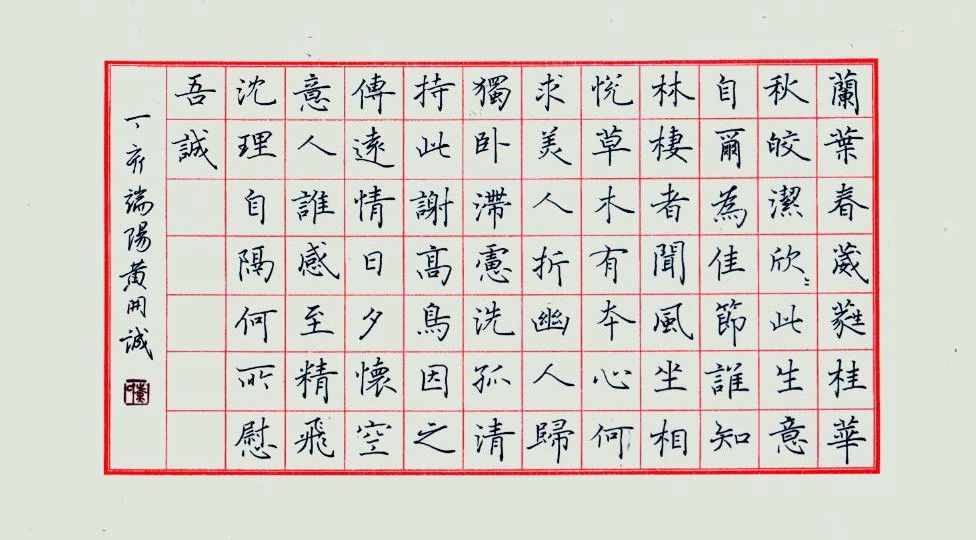 蘭葉春葳蕤桂華
秋皎潔欣〻此生意
自爾為佳節誰知
林棲者聞風坐相
悅草木有本心何
求美人折幽人歸
獨卧滯慮洗孤清
持此謝高鳥因之
傳遠情日夕懷空
意人誰感至精飛
沈理自隔何所慰
吾誠
丁亥端陽黃開誠